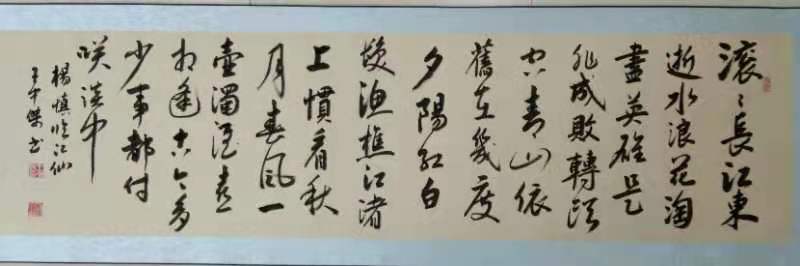 滚〻長江東
逝水浪花淘
盡英雄是
非成敗轉頭
空青山依
舊在幾度
夕陽紅白
髮漁樵江渚
上慣看秋
月春風一
壺濁酒喜
相逢古今多
少事都付
咲談中
楊慎临江仙